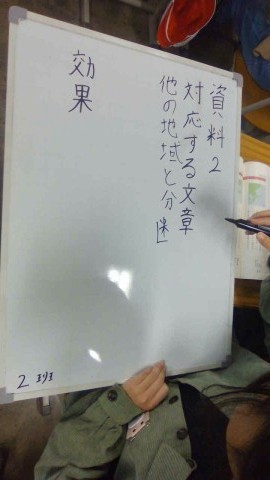 資料2
対応する文章
他の地域と分
効果
2班